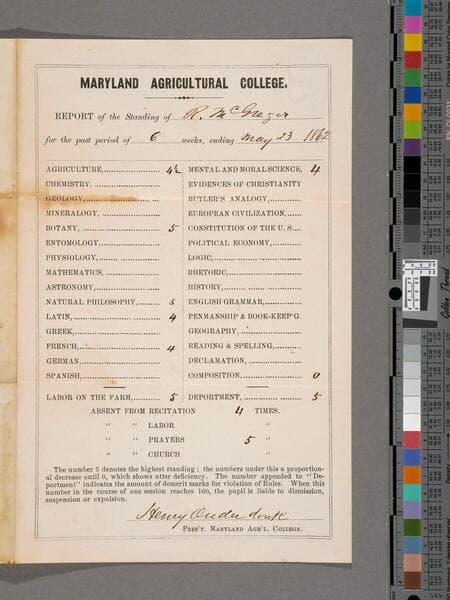 MARYLAND AGRICULTURAL COLLEGE.
REPORT of the Standing of R. McGregor
for the past period of 6 weeks, ending May 23 1862
AGRICULTURE, 4½
CHEMISTRY,
GEOLOGY,
MINERALOGY,
BOTANY, 5
ENTOMOLOGY,
PHYSIOLOGY,
MATHEMATICS,
ASTRONOMY,
NATURAL PHILOSOPHY, 5
LATIN, 4
GREEK,
FRENCH, 4
GERMAN,
SPANISH,
LABOR ON THE FARM, 5
MENTAL AND MORAL SCIENCE, 4
EVIDENCES OF CHRISTIANITY
BUTLER'S ANALOGY,
EUROPEAN CIVILIZATION,
CONSTITUTION OF THE U. S.
POLITICAL ECONOMY,
LOGIC,
RHETORIC,
HISTORY,
ENGLISH GRAMMAR,
PENMANSHIP & BOOK-KEEP'G.
GEOGRAPHY,
READING & SPELLING,
DECLAMATION,
COMPOSITION, 0
DEPORTMENT, 5
ABSENT FROM RECITATION 4 TIMES.
" " LABOR "
" " PRAYERS 5 "
" " CHURCH "
The number 5 denotes the highest standing; the numbers under this a proportion-
al decrease until 0, which shows utter deficiency. The number appended to "De-
portment" indicates the amount of demerit marks for violation of Rules. When this
number in the course of one session reaches 100, the pupil is liable to dismission,
suspension or expulsion.
Henry Onderdonk
PRES'T. MARYLAND AGR'L. COLLEGE.
Golden Thread